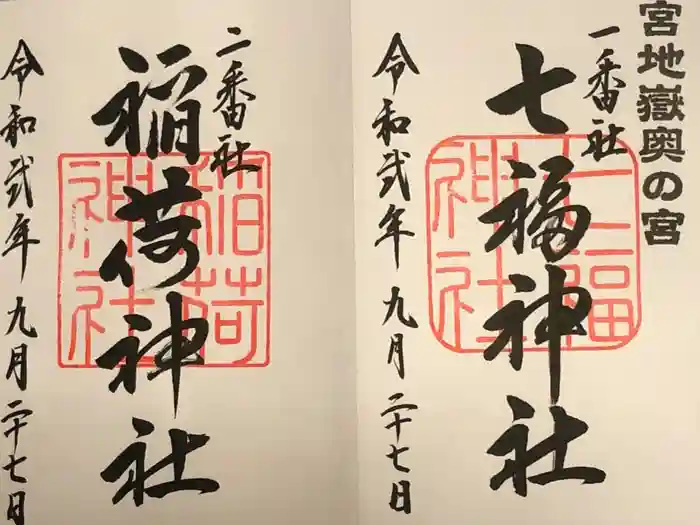 宮地嶽奥の宮
一番社
七福神社
七福神社
令和弐年九月二十七日
二番社
稲荷神社
稲荷神社
令和弐年九月二十七日